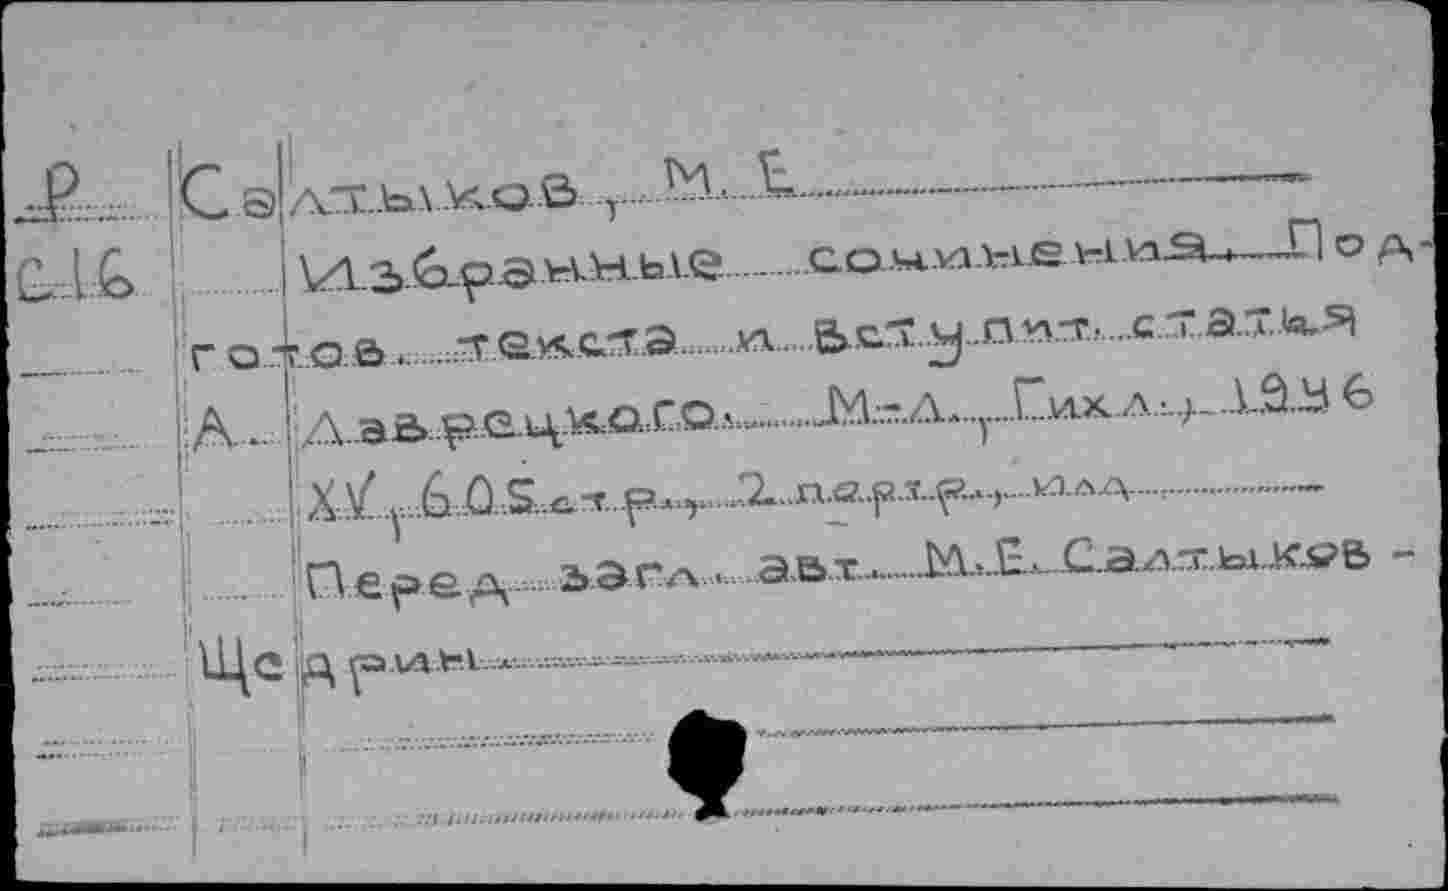 Р Салтыков, М. Е.
С16 Избранные сочинения. Под-
готов. текста и вступит. статья
А. Лаврецкого. М-Л., Гихл., 1946
XV, 605 стр., 2 портр., илл
Перед загл. авт. М.Е. Салтыков -
Щедрин.